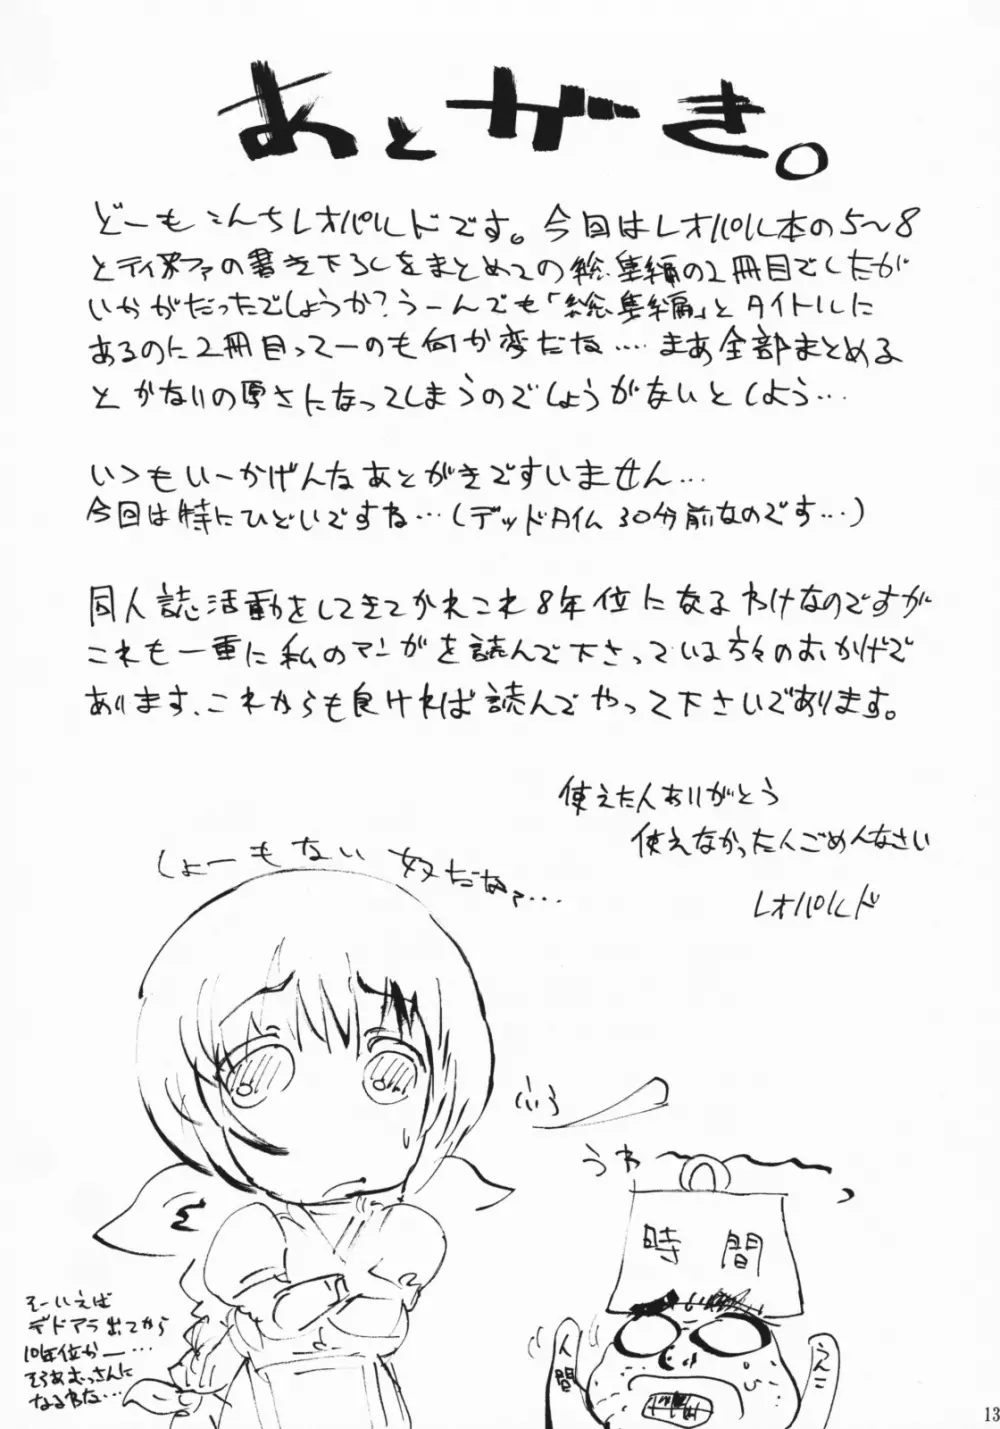 あとがき。
どーもこんちレオパルドです。今回はレオパル本の5〜8
とティファの書き下ろしをまとめての総集編の2冊目でしたが
いかがだったでしょうか?うーんでも「総集編」とタイトルに
あるのに2冊目ってーのも何か変だな‥‥まあ全部まとめる
とかなりの厚さになってしまうのでしょうがないとしよう…
いつもいーかげんなあとがきですいません…
今回は特にひどいですね…(デッドタイム30分前なのです…)
同人誌活動をしてきてかれこれ8年位になるわけなのですが
これも一重に私のマンガを読んで下さっている方々のおかげで
あります、これからも良ければ読んでやって下さいであります。
使えた人ありがとう
使えなかった人ごめんなさい
レオパルド
しょーもない奴だなァ…
うわ
時間
人間
そーいえば
デドアラ出てから
10年位かー…
そろあむっさんに
なるわな…
13